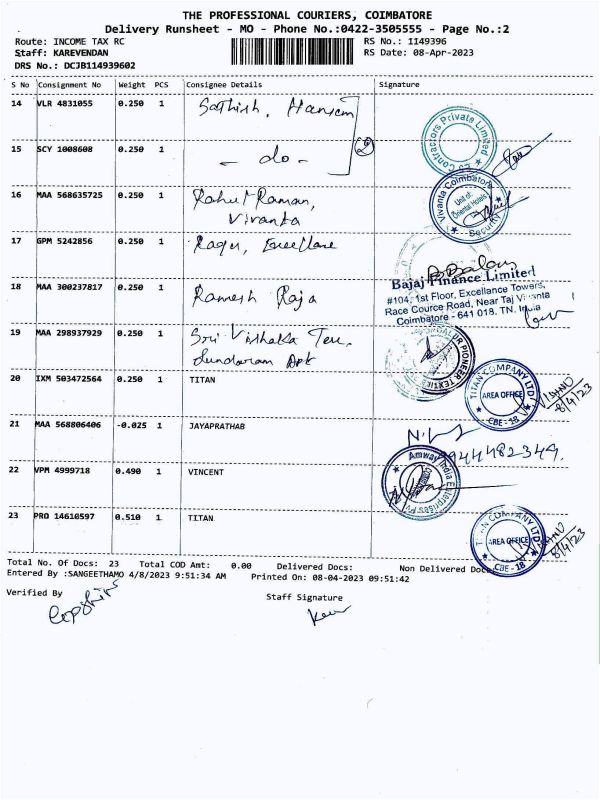 THE PROFESSIONAL COURIERS, COIMBATORE
Delivery Runsheet - MO - Phone No.:0422-3505555 - Page No.:2
Route: INCOME TAX RC RS No.: 1149396
Staff: KAREVENDAN RS Date: 08-Apr-2023
DRS No.: DCJB114939602
S No Consignment No Weight PCS Consignee Details Signature
14 VLR 4831055 0.250 1 Sathish,
Contractors Private Limited
15 SCY 1008608 0.250 1 - do - 2
16 MAA 568635725 0.250 1 Rahul Raman,
Vivanta
Vivanta Coimbatore
Unit of:
Oriental Hotels
Security
17 GPM 5242856 0.250 1 Ragu, Excellance
18 MAA 300237817 0.250 1 Ramesh Raja
Bajaj Finance Limited
#104, 1st Floor, Excellance Towers,
Race Cource Road, Near Taj Vivanta
Coimbatore - 641 018. TN. India
19 MAA 298937929 0.250 1 Sri Vishaka Tex,
Sundaram Apt
PIONEER TEXTILES
20 IXM 503472564 0.250 1 TITAN
TITAN COMPANY LTD
AREA OFFICE
CBE - 18
8/4/23
21 MAA 568806406 -0.025 1 JAYAPRATHAB
9944482349.
22 VPM 4999718 0.490 1 VINCENT
Amway India Enterprises Pvt
23 PRO 14610597 0.510 1 TITAN
TITAN COMPANY LTD
AREA OFFICE
CBE - 18
8/4/23
Total No. Of Docs: 23 Total COD Amt: 0.00 Delivered Docs: Non Delivered Docs:
Entered By :SANGEETHAMO 4/8/2023 9:51:34 AM Printed On: 08-04-2023 09:51:42
Verified By Staff Signature